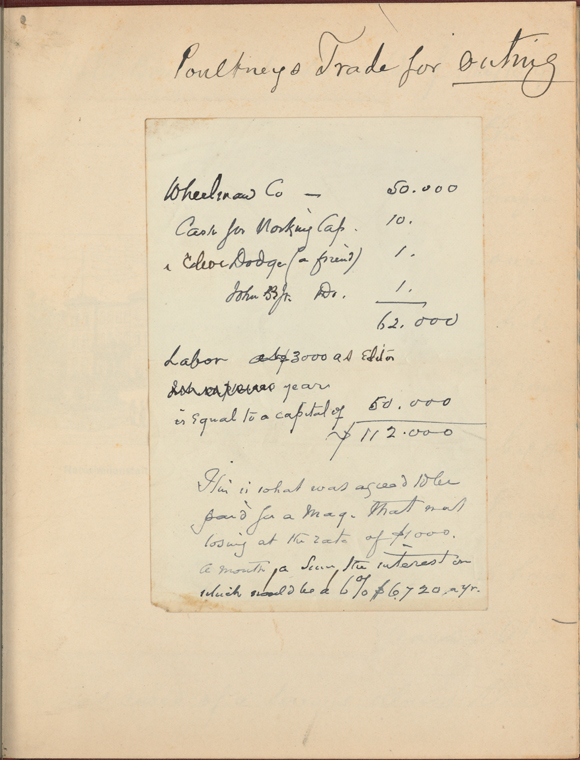 Poultneys Trade for Outing
Wheelman Co — 50.000
Cash for Working Cap. 10.
Dodge (a friend) 1.
John Jr. Do. 1.
62.000
Labor $3000 as Editor
years
is Equal to a capital of 50.000
$ 112.000
This is what was agreed to be
paid for a Mag. That was
losing at the rate of $1000.
a month, a Sum, the interest on
which would be a 6% $6,720 a yr.